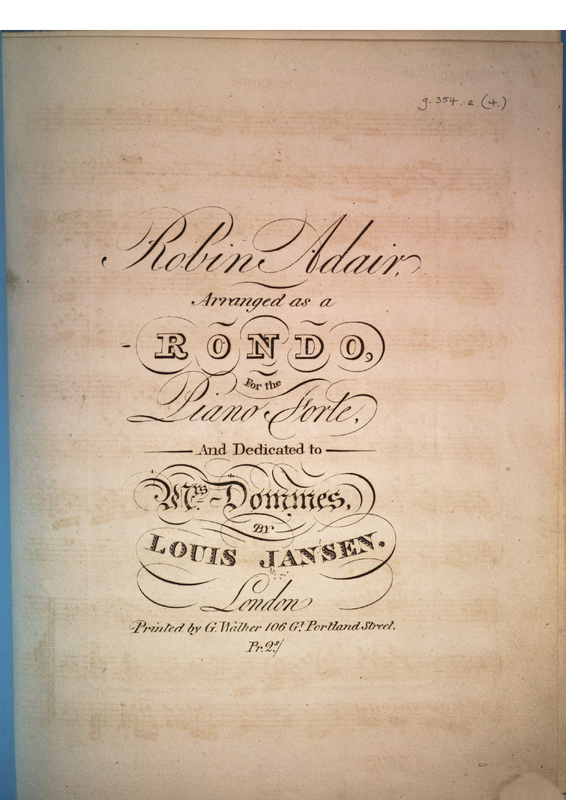 g. 354. e. (4.)
Robin Adair,
Arranged as a
RONDO,
For the
Piano Forte,
And Dedicated to
Mrs. Dommes,
BY
LOUIS JANSEN.
London
Printed by G. Walker 106 Gt. Portland Street.
Pr. 2s/